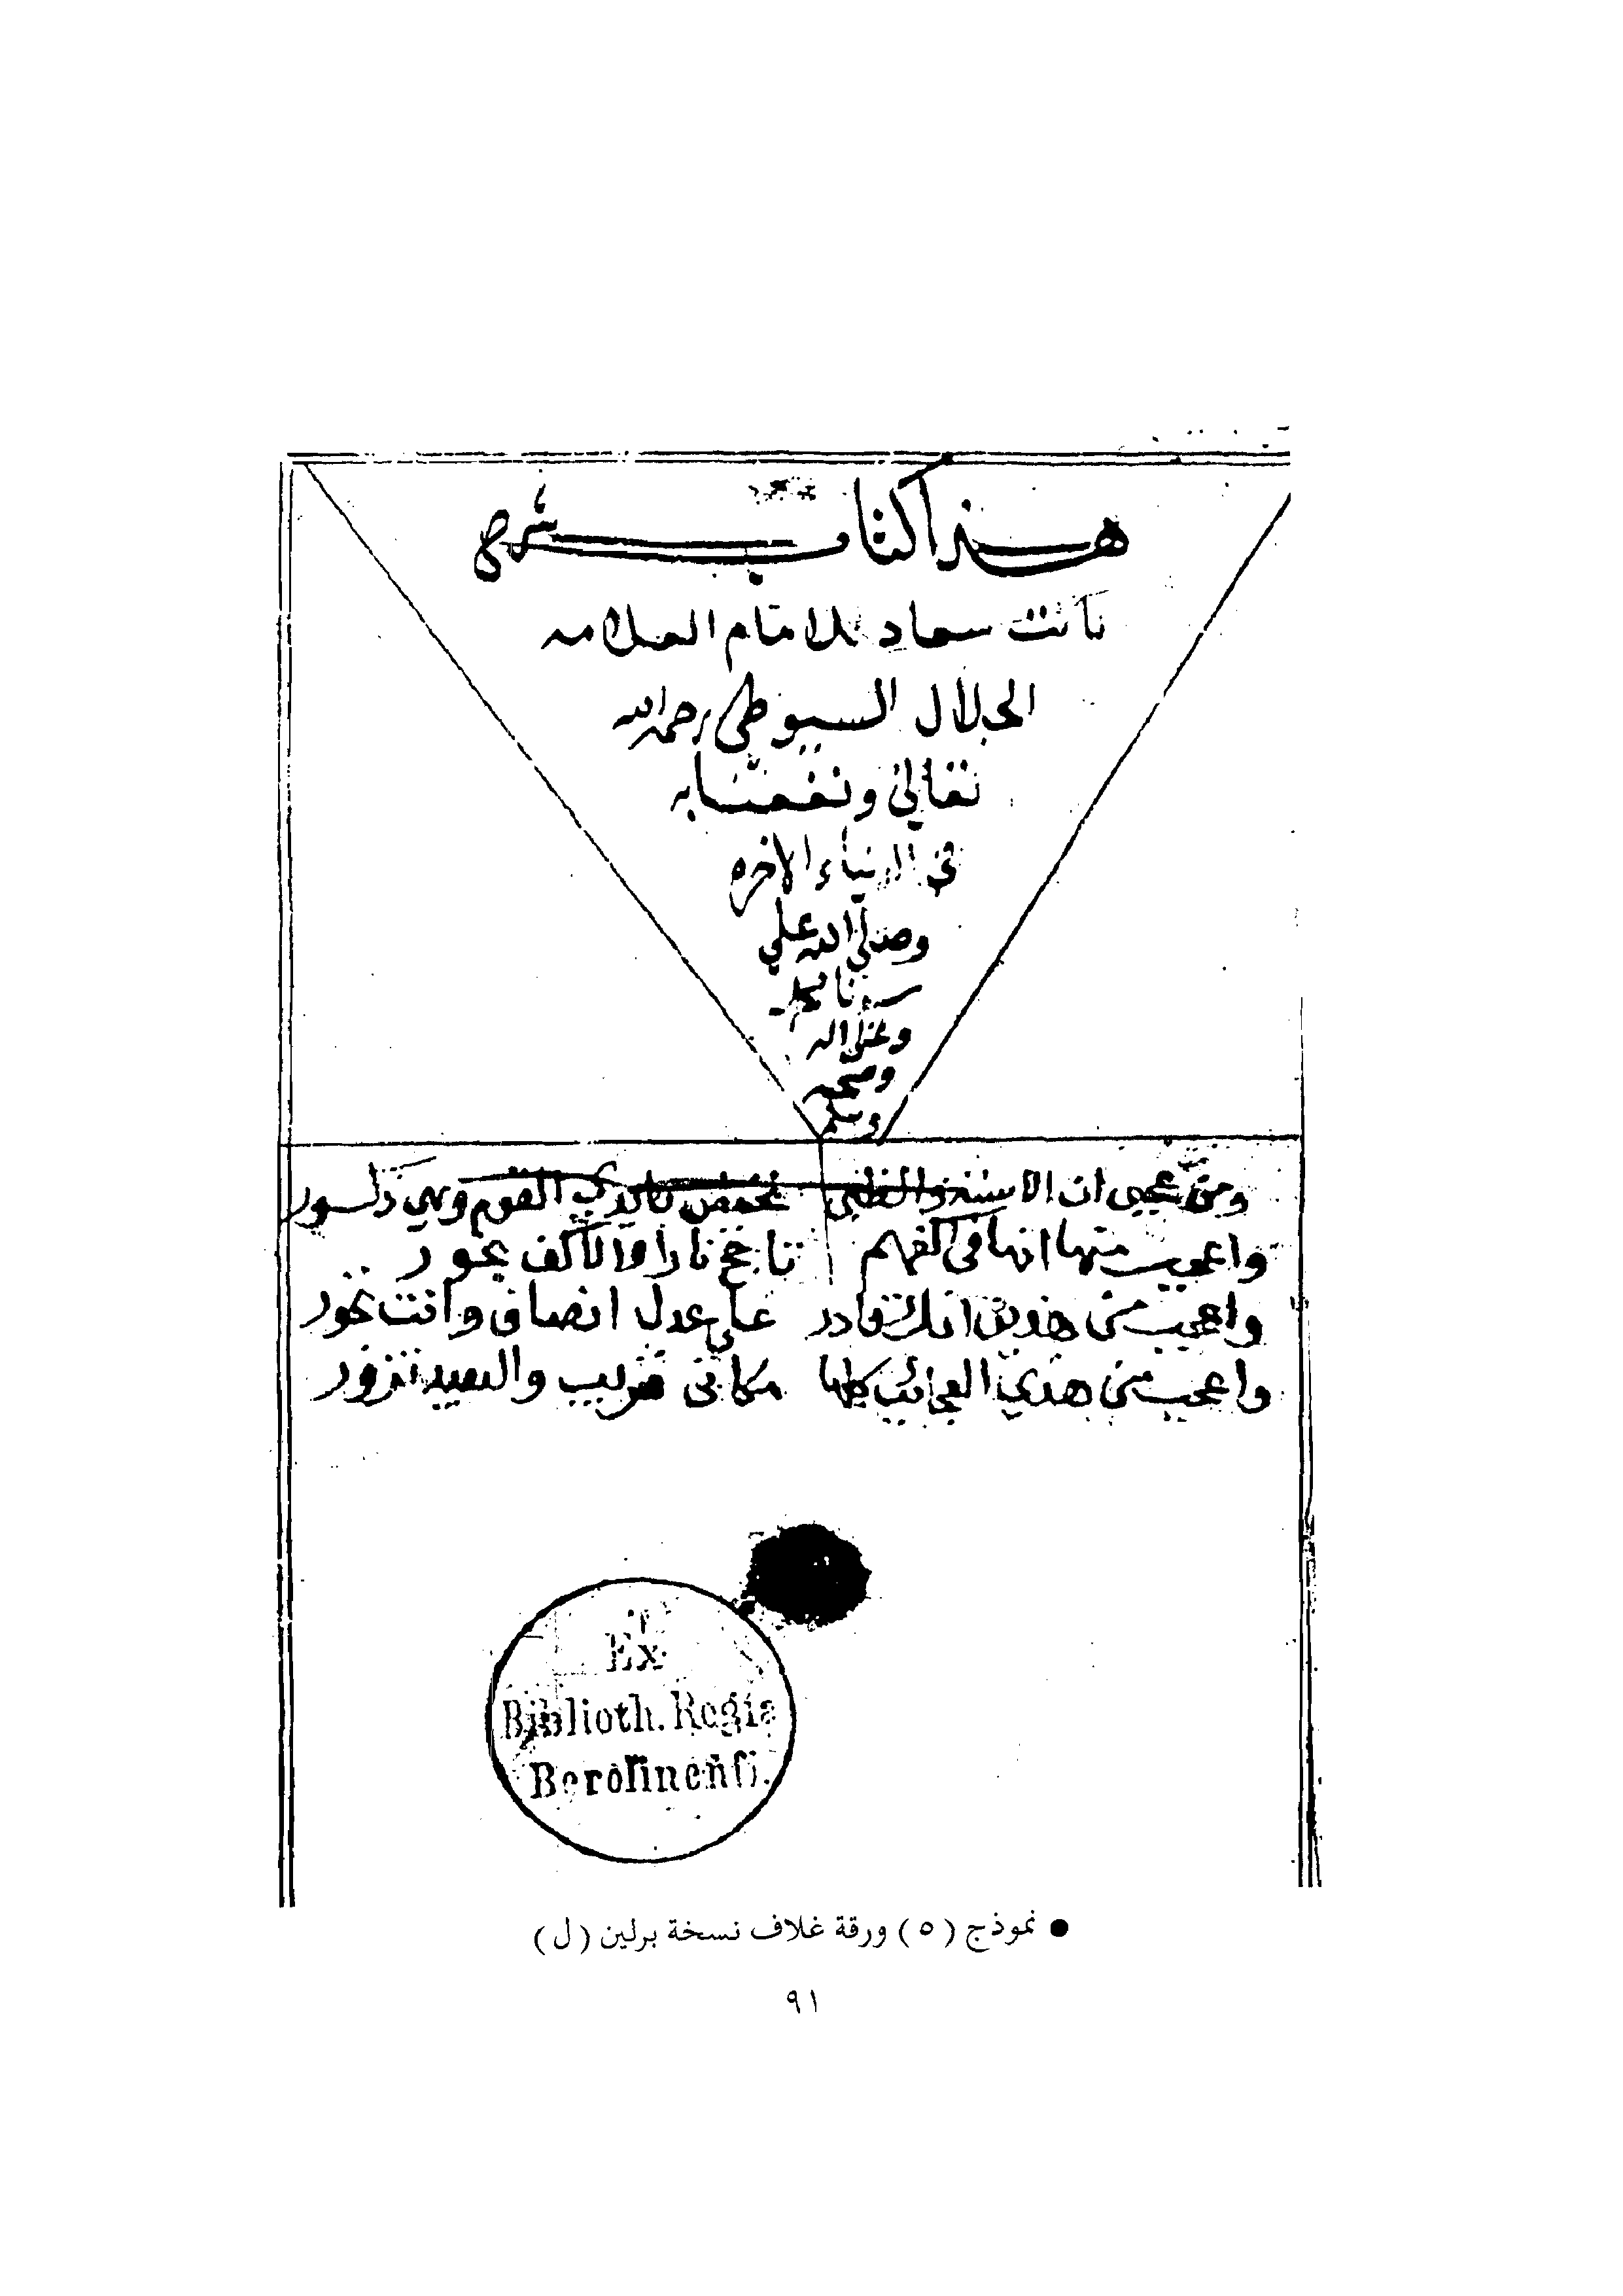 هذا كتاب شرح
بانت سعاد للامام العلامه
الجلال السيوطي رحمه الله
تعالى ونفعنا به
في الدنيا والاخره
وصلى الله علي
سيدنا محمد
وعلى اله
وصحبه
وسلم
ومن عجبي ان الاسنة والظبى تحيض بايدي القوم وهي ذكور
واعجب منها انها في اكفهم تاجج نارا والاكف بحور
واعجب من هذين انك قادر على عدل انصاف وانت تجور
واعجب من هذي العجائب كلها مكاني قريب والبعيد تزور
Ex
Biblioth. Regia
Berolinenſi.
● نموذج (٥) ورقة غلاف نسخة برلين (ل)
٩١